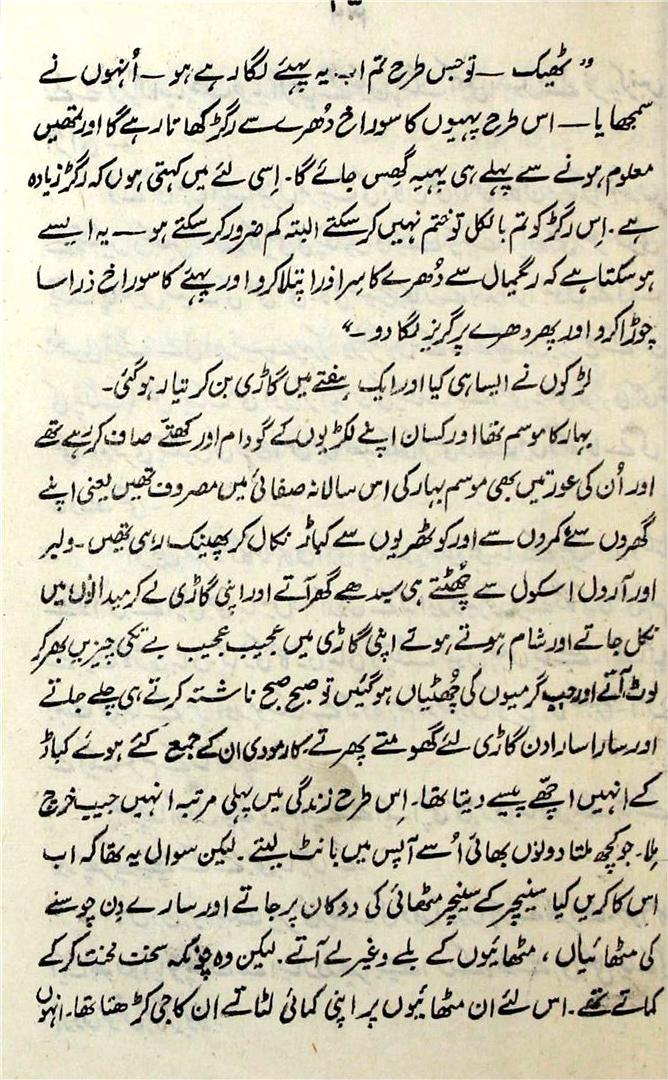 ” ٹھیک — تو جس طرح تم اب یہ پہیئے لگا رہے ہو — اُنہوں نے
سمجھایا — اس طرح پہیوں کا سوراخ دُھرے سے رگڑ کھاتا رہے گا اور تمھیں
معلوم ہونے سے پہلے ہی پہیہ گھِس جائے گا۔ اِسی لئے میں کہتی ہوں کہ رگڑ زیادہ
ہے۔ اِس رگڑ کو تم بالکل تو ختم نہیں کر سکتے البتہ کم ضرور کر سکتے ہو — یہ ایسے
ہو سکتا ہے کہ ریگمال سے دُھرے کا سِرا ذرا پتلا کرو اور پہیئے کا سوراخ ذرا سا
چوڑا کرو اور پھر دھرے پر گریز لگا دو۔“
لڑکوں نے ایسا ہی کیا اور ایک ہفتے میں گاڑی بن کر تیار ہو گئی۔
بہار کا موسم تھا اور کسان اپنے لکڑیوں کے گودام اور کھتّے صاف کر رہے تھے
اور اُن کی عورتیں بھی موسم بہار کی اس سالانہ صفائی میں مصروف تھیں یعنی اپنے
گھروں سے کمروں سے اور کوٹھریوں سے کباڑ نکال کر پھینک رہی تھیں۔ ولبر
اور آرول اسکول سے چُھٹتے ہی سیدھے گھر آتے اور اپنی گاڑی لے کر میدانوں میں
نکل جاتے اور شام ہوتے ہوتے اپنی گاڑی میں عجیب عجیب بے تکی چیزیں بھر کر
لوٹ آتے اور جب گرمیوں کی چُھٹیاں ہو گئیں تو صبح صبح ناشتہ کرتے ہی چلے جاتے
اور سارا سارا دن گاڑی لئے گھومتے پھرتے۔ کارمودی ان کے جمع کئے ہوئے کباڑ
کے انہیں اچھّے پیسے دیتا تھا۔ اِس طرح زندگی میں پہلی مرتبہ انہیں جیب خرچ
مِلا۔ جو کچھ ملتا دونوں بھائی اُسے آپس میں بانٹ لیتے۔ لیکن سوال یہ تھا کہ اب
اس کا کریں کیا سنیچر کے سنیچر مٹھائی کی دوکان پر جاتے اور سارے دِن چوسنے
کی مٹھائیاں، مٹھائیوں کے بلے وغیرہ لے آتے۔ لیکن وہ چونکہ سخت محنت کر کے
کماتے تھے۔ اس لئے ان مٹھائیوں پر اپنی کمائی لٹاتے ان کا جی کڑھتا تھا۔ انہوں